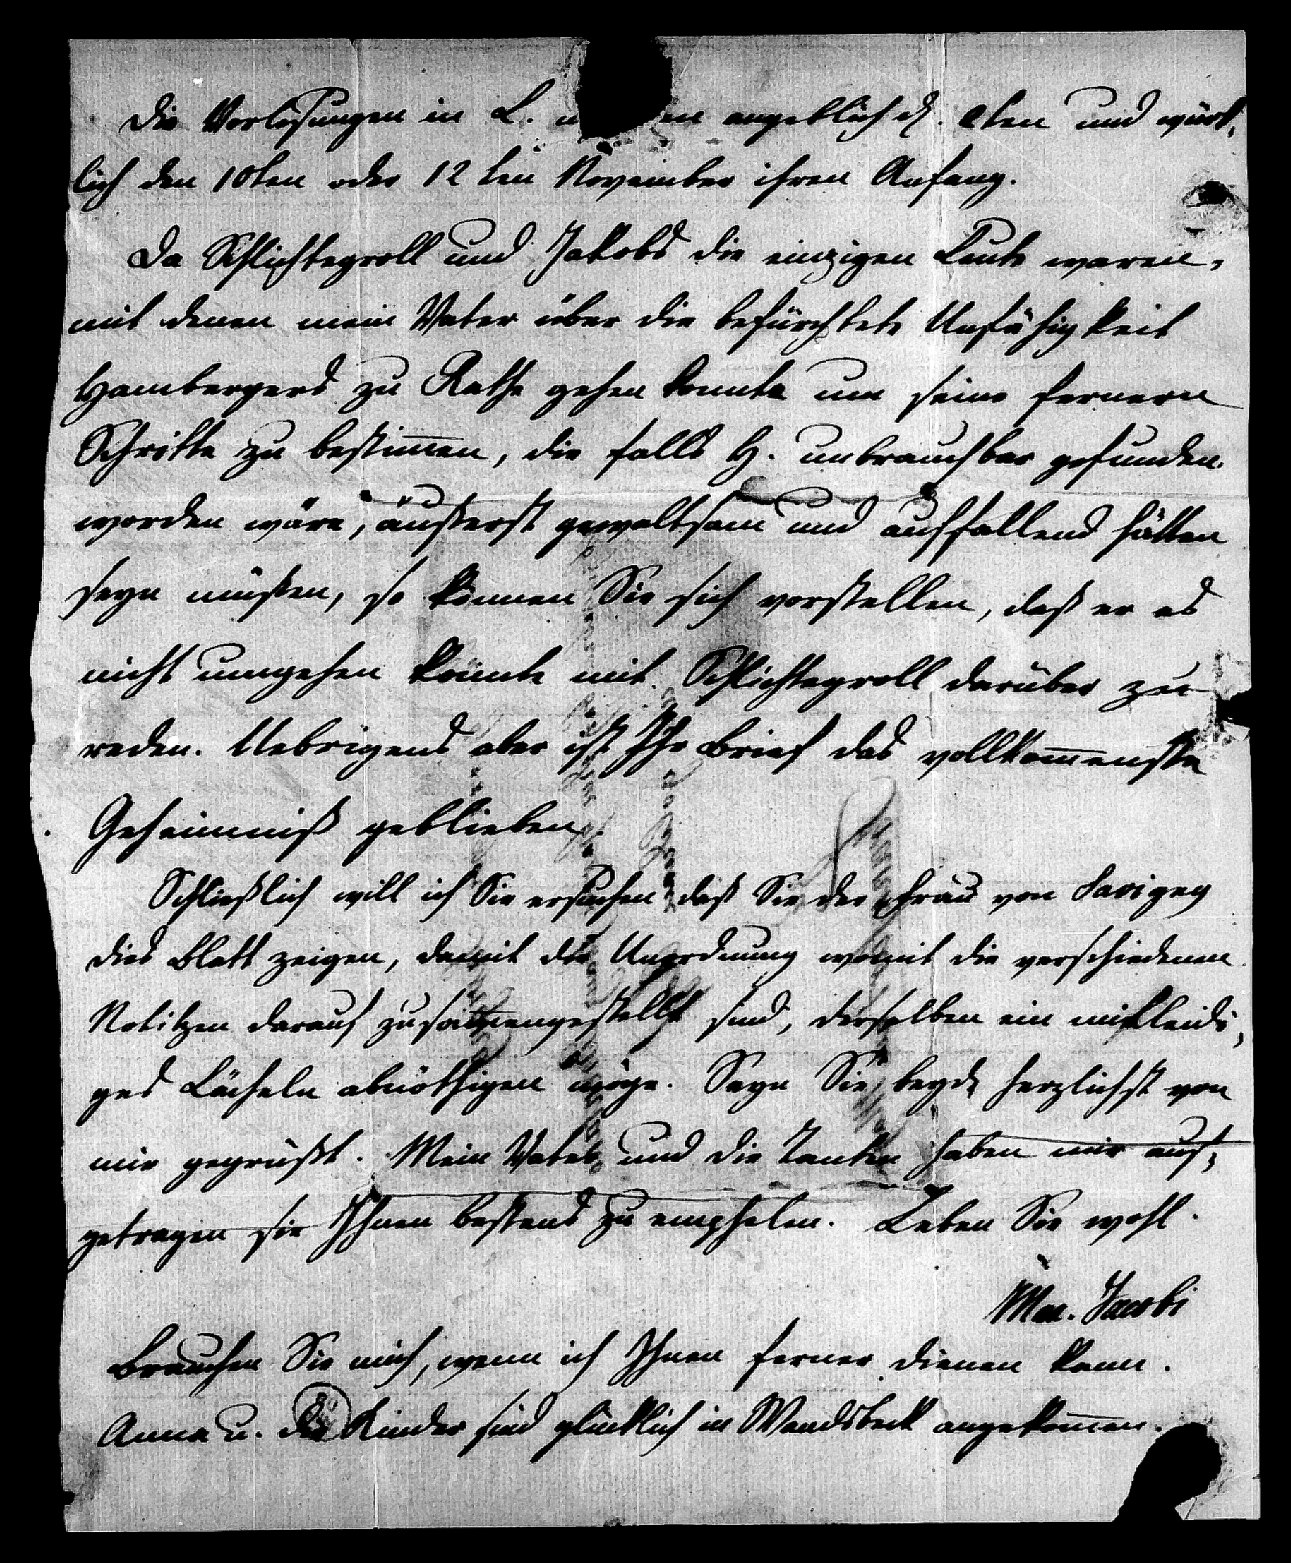 Die Vorlesungen in L. n en angeblich d. 2ten und würk,
lich den 10ten oder 12ten November ihren Anfang.
Da Schlichtegroll und Jakobs die einzigen Leute waren,
mit denen mein Vater über die befürchtete Unfähigkeit
Hambergers zu Rathe gehen konnte um seine fernern
Schritte zu bestim̅en, die falls H. unbrauchbar gefunden
worden wäre, äußerst gewaltsam und auffallend hätten
seyn müßen, so können Sie sich vorstellen, daß er es
nicht umgehen konnte mit Schlichtegroll darüber zu
reden. Uebrigens aber ist Ihr Brief das vollkom̅enste
Geheimniß geblieben.
Schließlich will ich Sie ersuchen daß Sie der Frau von Savigny
dies Blatt zeigen, damit die Unordnung womit die verschiedenen
Notitzen darauf zusam̅engestellt sind, derselben ein mitleidi,
ges Lächeln abnöthigen möge. Seyn Sie beyde herzlichst von
mir gegrüßt. Mein Vater und die Tanten haben mir auf,
getragen sie Ihnen bestens zu empfelen. Leben Sie wohl.
Max. Jacobi
Brauchen Sie mich, wenn ich Ihnen ferner dienen kann.
Anna u. die Kinder sind glücklich in Wandsbeck angekom̅en.